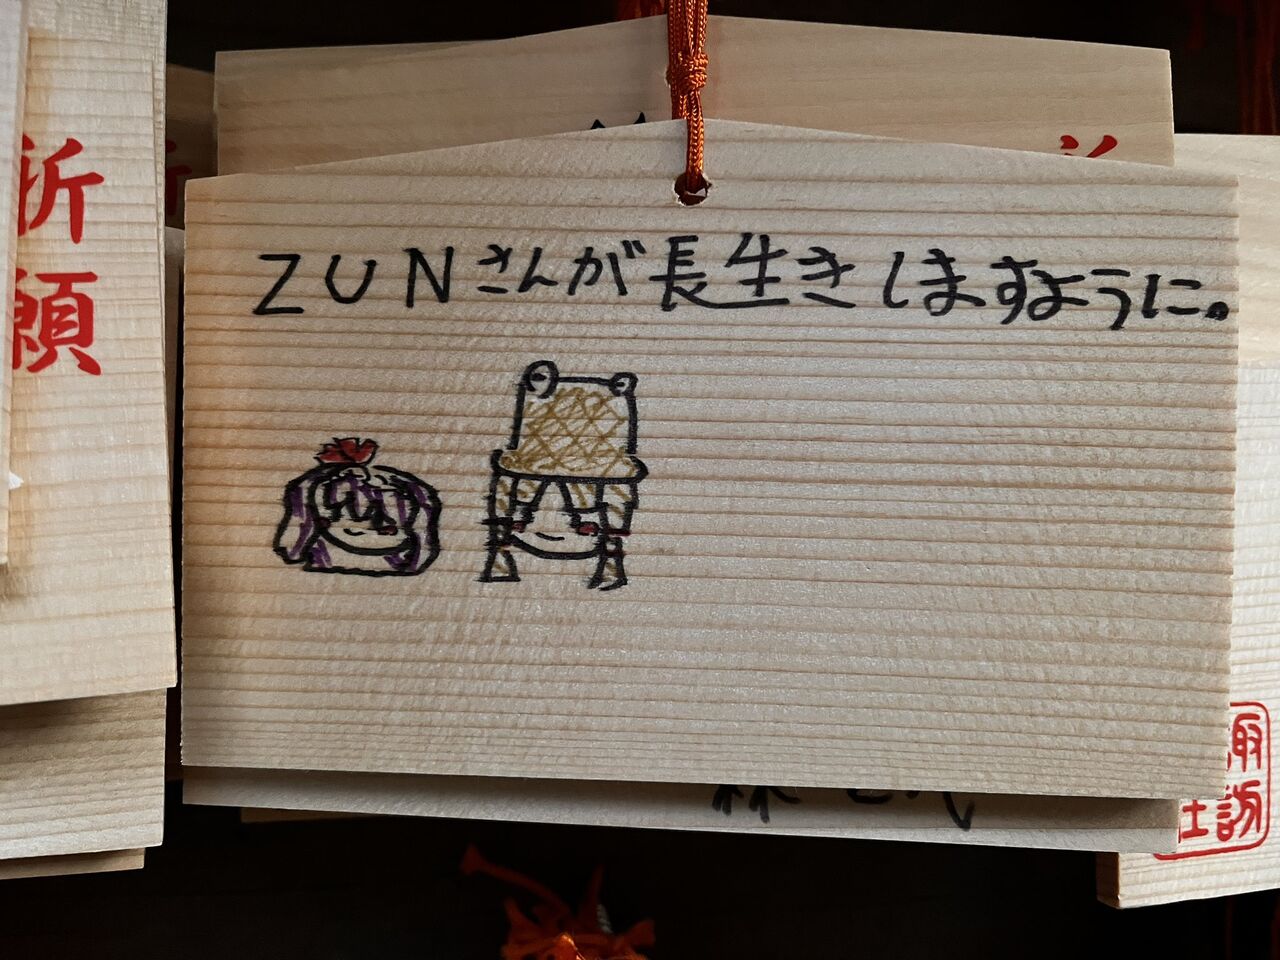 祈願
ZUNさんが長生きしますように。
諏訪
社